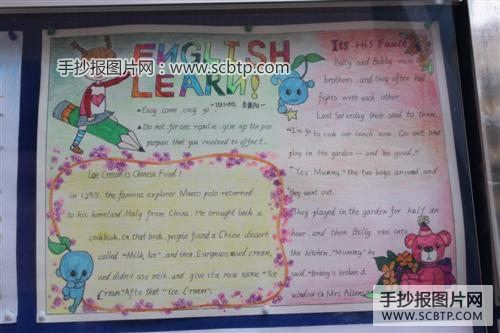 ENGLISH
LEARN!
手抄报图片网
www.scbtp.com
• Easy come, easy go
▲ Do not, for one repulse, give up the pur
purpose that you resolved to effect.
Ice Cream is Chinese Food!
in 1295, the famous explorer Marco polo returned
to his homeland, Italy from China. He brought back a
cookbook. in that book, people found a Chinese dessert
called "Milk Ice", and then,
cream,
and didn't use milk, and give it a new name "Ice
Cream". After that "ice Cream".
Its His Fault
Billy and Bobby were
brothers, and they often had
fights with each other
Last Saturday their said to them,
"I'm go to cook our lunch now. Go out and
play in the garden — and be good."
"Yes. Mummy," the two boys and
they went out.
They played in the garden for half an
hour, and then Billy ran into
the kitchen. "Mummy," he
said. "Bobby's broken a
window in Mrs Allen's
手抄报图片网
WWW.SCBTP.COM